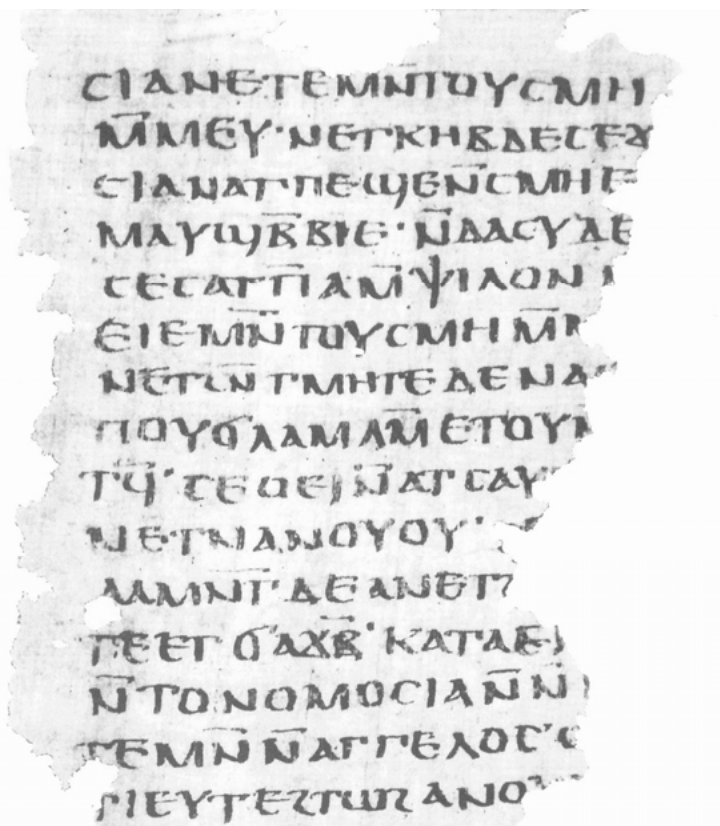 ⲥⲓⲁⲛⲉⲧⲉⲙⲛ̄ⲧⲟⲩⲥⲙⲏ
ⲙ̄ⲙⲉⲩ·ⲛⲉⲧⲕⲏⲃⲇⲉⲥⲉ
ⲥⲓⲁⲛⲁⲧⲡⲉϣⲉⲛ̄ⲥⲙⲏⲉ
ⲙⲁⲩϣⲃ̄ⲃⲓⲉ·ⲛ̄ⲇⲁⲥⲩⲇⲉ
ⲥⲉⲥⲁⲧⲡ̄ⲁⲙ̄ⲯⲓⲗⲟⲛ
ⲉⲓⲉⲙⲛ̄ⲧⲟⲩⲥⲙⲏⲙ̄
ⲛⲉⲧϩⲛ̄ⲧⲙⲏⲧⲉⲇⲉⲛⲁ
ⲡⲟⲩϭⲗⲁⲙⲁⲙ̄ⲉⲧⲟⲩ
ⲧϥ̄·ⲥⲉϩⲉⲓⲛ̄ⲁⲧⲥⲁⲩ
ⲛⲉⲧⲛⲁⲛⲟⲩⲟⲩ·
ⲁⲙⲛ̄ⲧⲇⲉⲁⲛⲉⲧϩ
ⲡⲉⲉⲧϭⲁϫⲃ̄·ⲕⲁⲧⲁⲑⲉ
ⲛ̄ⲧⲟⲛⲟⲙⲟⲥⲓⲁⲛ̄ⲛ̄
ⲧⲉⲙⲛ̄ⲛ̄ⲁⲅⲅⲉⲗⲟⲥ·
ⲡⲓⲉⲩⲧⲉϩⲧⲱϩⲁⲛⲟ